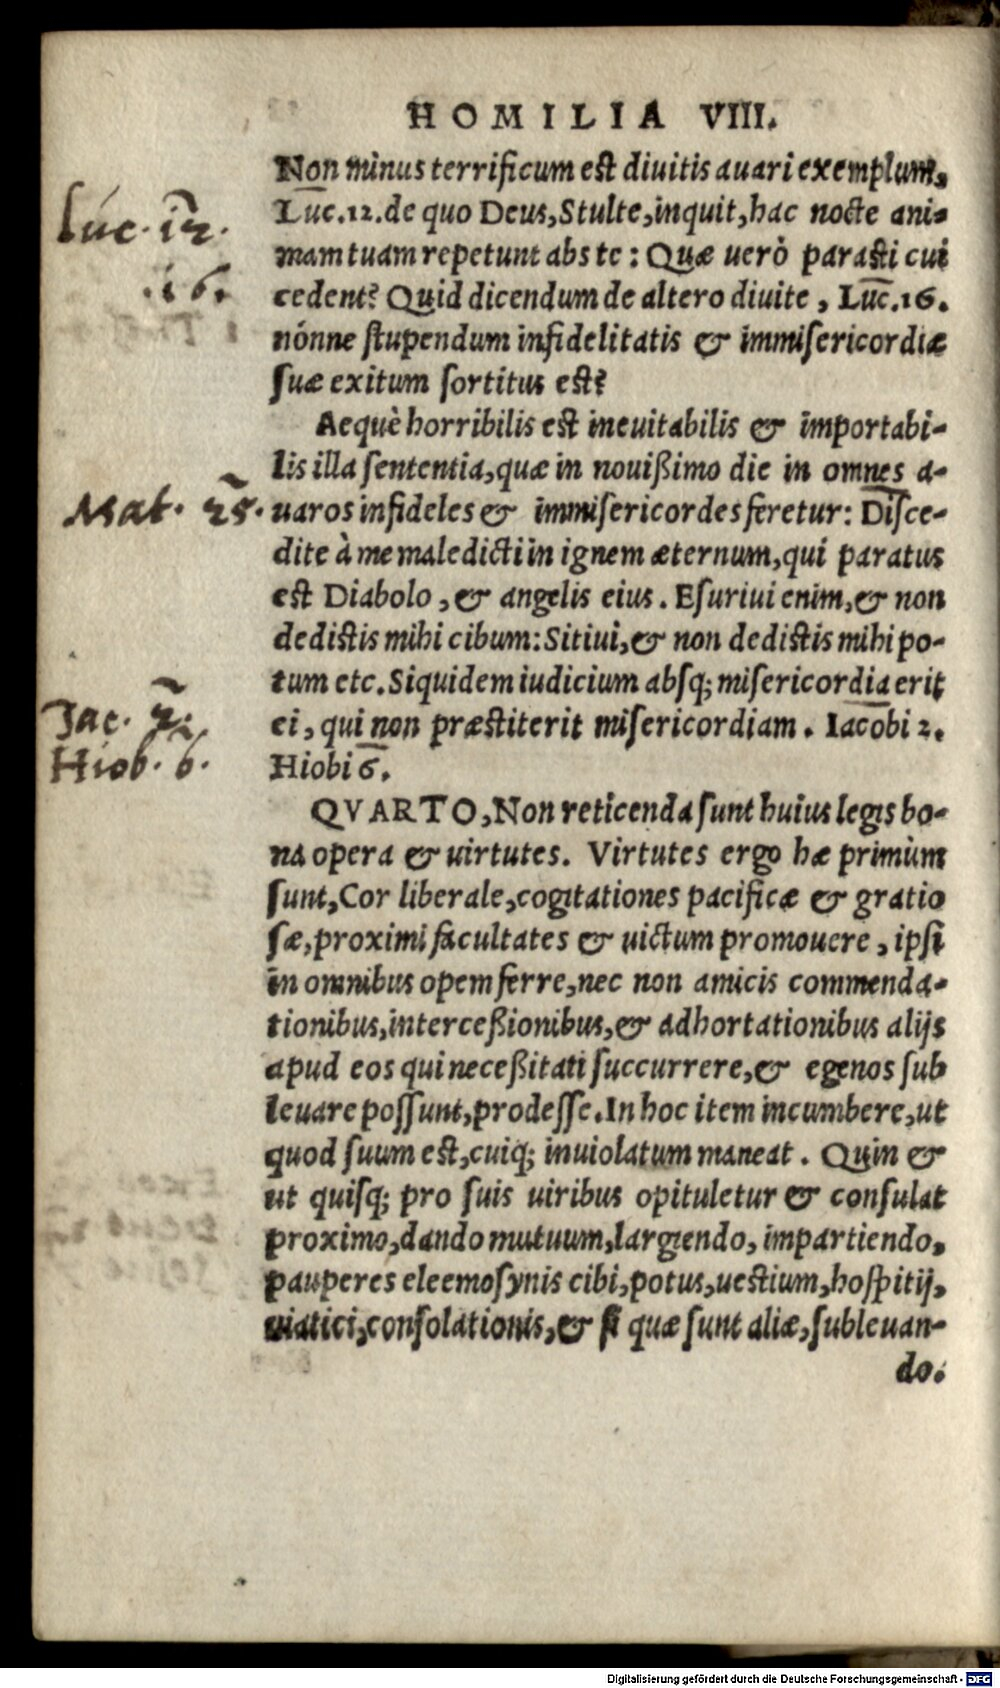 HOMILIA VIII.
Non minus terrificum est diuitis auari exemplum,
Luc. 12. de quo Deus, Stulte, inquit, hac nocte ani-
mam tuam repetunt abs te: Quæ uerò parasti cui
cedent? Quid dicendum de altero diuite, Luc. 16.
nónne stupendum infidelitatis & immisericordiæ
suæ exitum sortitus est?
Aequè horribilis est ineuitabilis & importabi-
lis illa sententia, quæ in nouißimo die in omnes a-
uaros infideles & immisericordes feretur: Disce-
dite à me maledicti in ignem æternum, qui paratus
est Diabolo, & angelis eius. Esuriui enim, & non
dedistis mihi cibum: Sitiui, & non dedistis mihi po-
tum etc. Siquidem iudicium absq; misericordia erit
ei, qui non præstiterit misericordiam. Iacobi 2.
Hiobi 6.
QVARTO, Non reticenda sunt huius legis bo-
na opera & uirtutes. Virtutes ergo hæ primùm
sunt, Cor liberale, cogitationes pacificæ & gratio
sæ, proximi facultates & uictum promouere, ipsi
in omnibus opem ferre, nec non amicis commenda-
tionibus, interceßionibus, & adhortationibus alijs
apud eos qui neceßitati succurrere, & egenos sub
leuare possunt, prodesse. In hoc item incumbere, ut
quod suum est, cuiq; inuiolatum maneat. Quin &
ut quisq; pro suis uiribus opituletur & consulat
proximo, dando mutuum, largiendo, impartiendo,
pauperes eleemosynis cibi, potus, uestium, hospitij,
uiatici, consolationis, & si quæ sunt aliæ, subleuan-
do.
Luc. 12.
.16.
Mat. 25.
Jac. 2:
Hiob. 6.
Digitalisierung gefördert durch die Deutsche Forschungsgemeinschaft - DFG